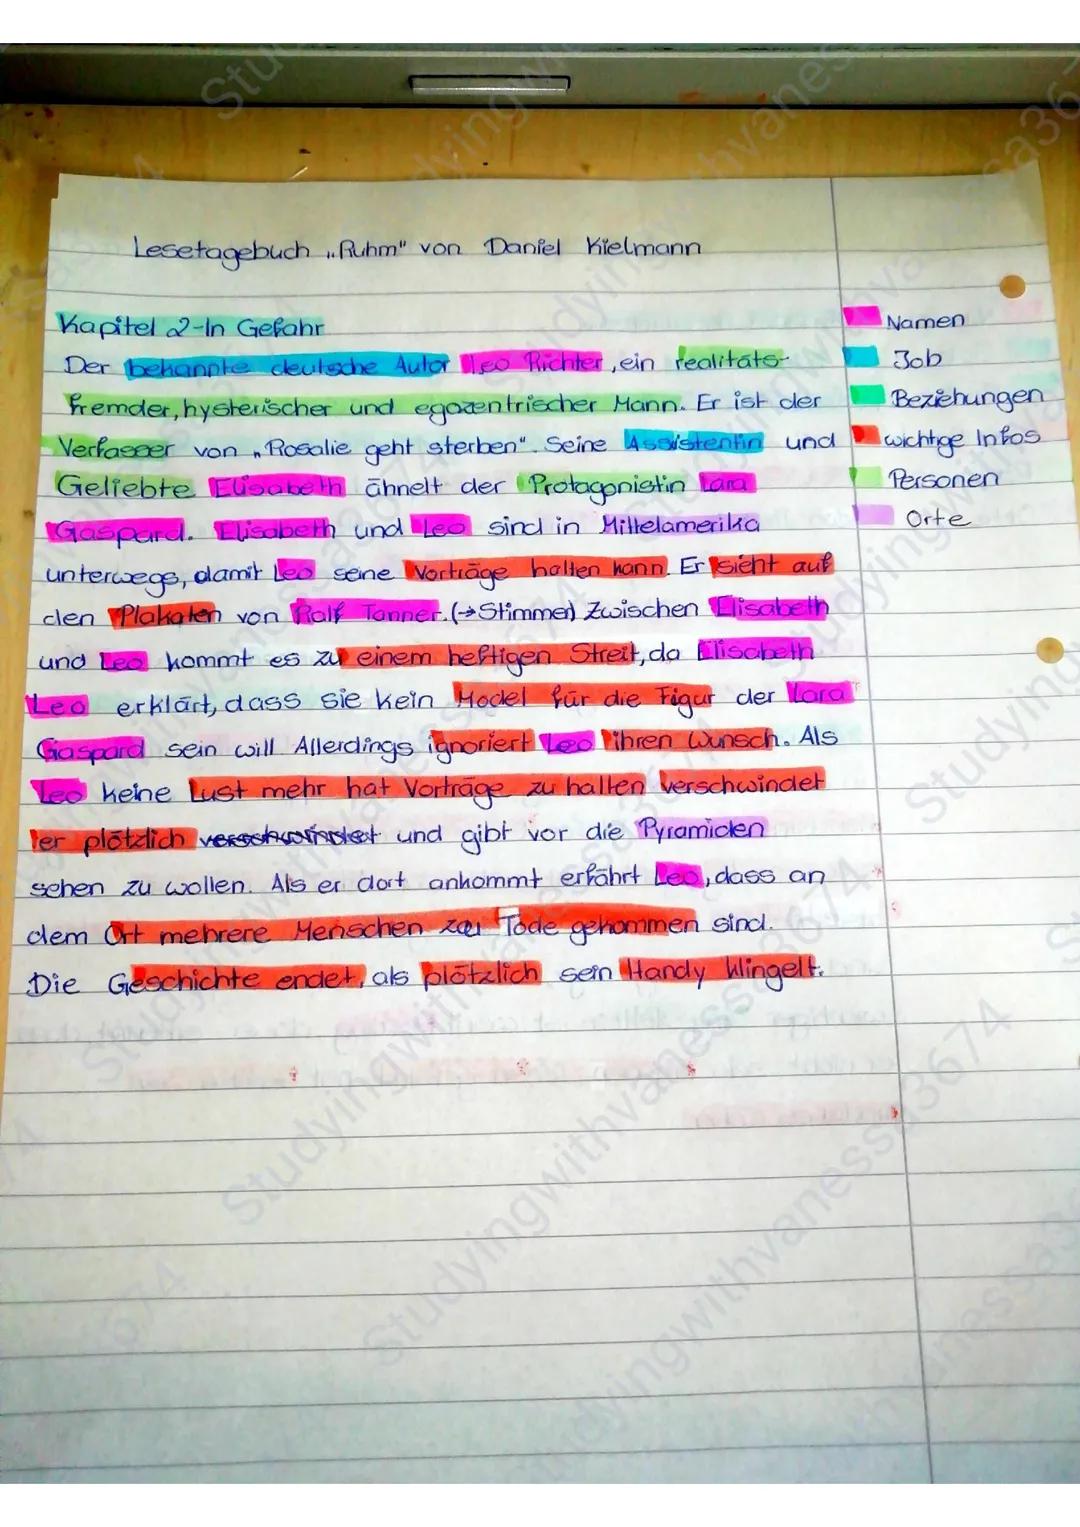 Lesetagebuch „Ruhm" von Daniel Kielmann
Kapitel 2-In Gefahr
Der bekannte deutsche Autor Leo Richter, ein realitäts-
fremder, hysterischer und egozentrischer Mann. Er ist der
Verfasser von „Rosalie geht sterben". Seine Assistentin und
Geliebte Elisabeth ähnelt der Protagonistin Lara
Gaspard. Elisabeth und Leo sind in Mittelamerika
unterwegs, damit Leo seine Vorträge halten kann. Er sieht auf
den Plakaten von Ralf Tanner. (→Stimmen) Zwischen Elisabeth
und Leo kommt es zu einem heftigen Streit, da Elisabeth
Leo erklärt, dass sie kein Model für die Figur der Lara
Gaspard sein will. Allerdings ignoriert Leo ihren Wunsch. Als
Leo keine Lust mehr hat Vorträge zu halten verschwindet
er plötzlich verschwindet und gibt vor die Pyramiden
sehen zu wollen. Als er dort ankommt erfährt Leo, dass an
dem Ort mehrere Menschen zu Tode gekommen sind.
Die Geschichte endet, als plötzlich sein Handy klingelt.
Namen
Job
Beziehungen
wichtige Infos
Personen
Orte
Studyingwithvanessa3674